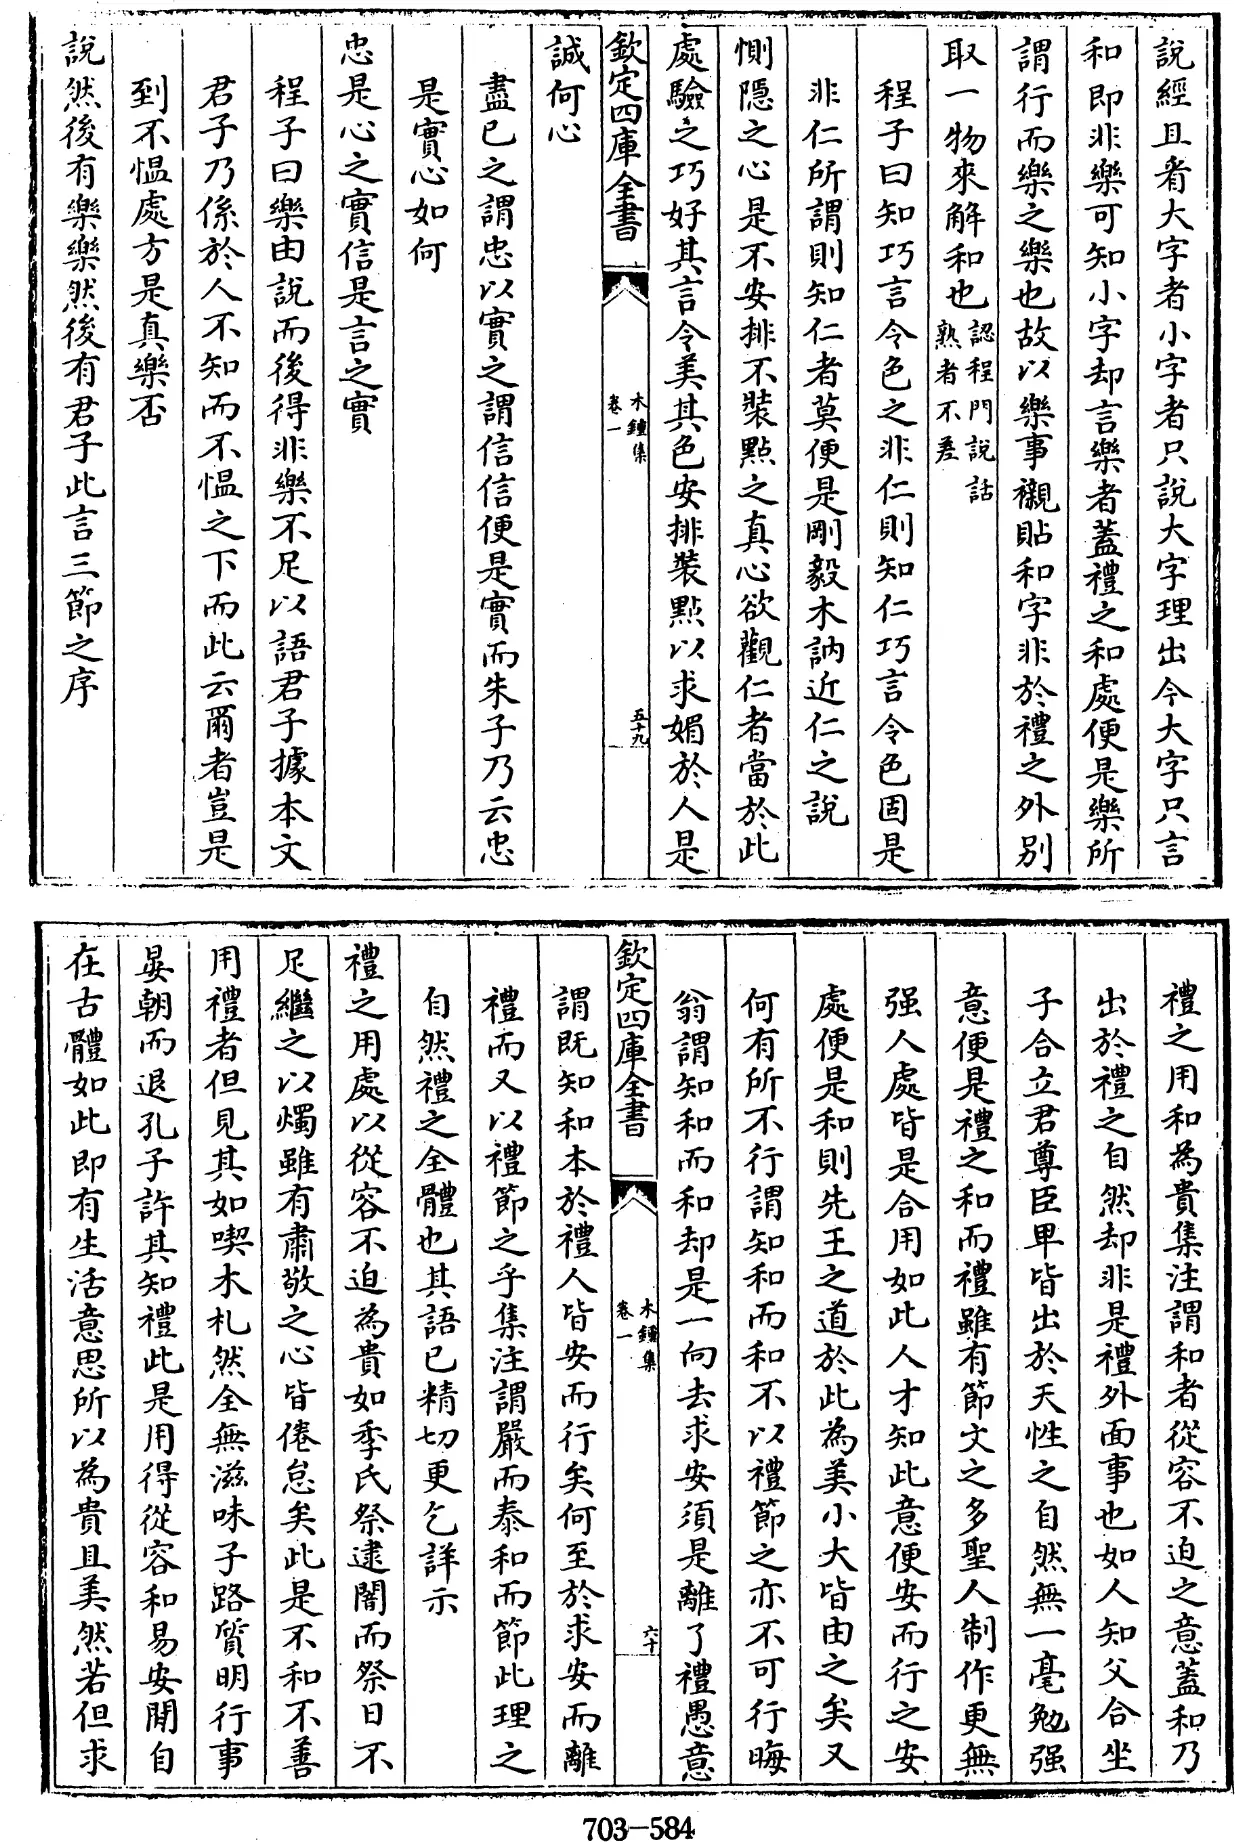 說經且看大字者小字者只說大字理出今大字只言
和即非樂可知小字却言樂者蓋禮之和處便是樂所
謂行而樂之樂也故以樂事襯貼和字非於禮之外別
取一物來解和也認程門說話
熟者不差
程子曰知巧言令色之非仁則知仁巧言令色固是
非仁所謂則知仁者莫便是剛毅木訥近仁之說
惻隠之心是不安排不裝點之真心欲觀仁者當於此
處驗之巧好其言令美其色安排裝點以求媚於人是
欽定四庫全書
木鐘集
卷一
五十九
誠何心
盡已之謂忠以實之謂信信便是實而朱子乃云忠
是實心如何
忠是心之實信是言之實
程子曰樂由說而後得非樂不足以語君子據本文
君子乃係於人不知而不愠之下而此云爾者豈是
到不愠處方是真樂否
說然後有樂樂然後有君子此言三節之序
禮之用和為貴集注謂和者從容不迫之意蓋和乃
出於禮之自然却非是禮外面事也如人知父合坐
子合立君尊臣卑皆出於天性之自然無一毫勉强
意便是禮之和而禮雖有節文之多聖人制作更無
强人處皆是合用如此人才知此意便安而行之安
處便是和則先王之道於此為美小大皆由之矣又
何有所不行謂知和而和不以禮節之亦不可行晦
翁謂知和而和却是一向去求安須是離了禮愚意
欽定四庫全書
木鐘集
卷一
六十
謂既知和本於禮人皆安而行矣何至於求安而離
禮而又以禮節之乎集注謂嚴而泰和而節此理之
自然禮之全體也其語已精切更乞詳示
禮之用處以從容不迫為貴如季氏祭逮闇而祭日不
足繼之以燭雖有肅敬之心皆倦怠矣此是不和不善
用禮者但見其如喫木札然全無滋味子路質明行事
晏朝而退孔子許其知禮此是用得從容和易安閒自
在古體如此即有生活意思所以為貴且美然若但求
703-584